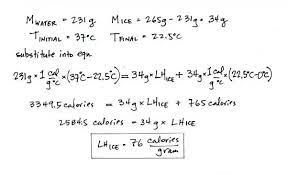 MWATER = 231 g MICE = 265g - 231g = 34g
TINITIAL = 37°C TFINAL = 22.5°C
substitute into eqn
231g × 1 cal/g°C × (37°C - 22.5°C) = 34g × LHICE + 34g × 1 cal/g°C × (22.5°C - 0°C)
3349.5 calories = 34g × LHICE + 765 calories
2584.5 calories = 34g × LHICE
LHICE = 76 calories/gram